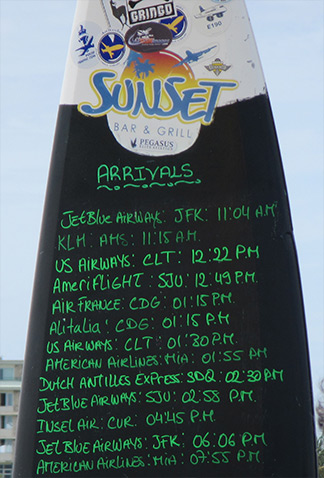 GRINGO
E190
SUNSET
BAR & GRILL
PEGASUS
ARRIVALS
JetBlue AIRWAYS: JFK: 11:04 AM
KLM: AMS: 11:15 AM.
US AIRWAYS: CLT: 12:22 PM
AmeriFLIGHT: SJU: 12:49 PM.
AIR FRANCE: CDG: 01:15 PM.
Alitalia: CDG: 01:15 P.M.
US AIRWAYS: CLT: 01:30 PM.
AMERICAN AIRLINES: MIA: 01:55 PM
DUTCH ANTILLES EXPRESS: SDQ: 02:30 PM
JetBLUE AIRWAYS: SJU: 02:58 P.M.
INSEL AIR: CUR: 04:45 P.M.
JetBlue AIRWAYS: JFK: 06:06 P.M
AMERICAN AIRLINES: MIA: 07:55 P.M.